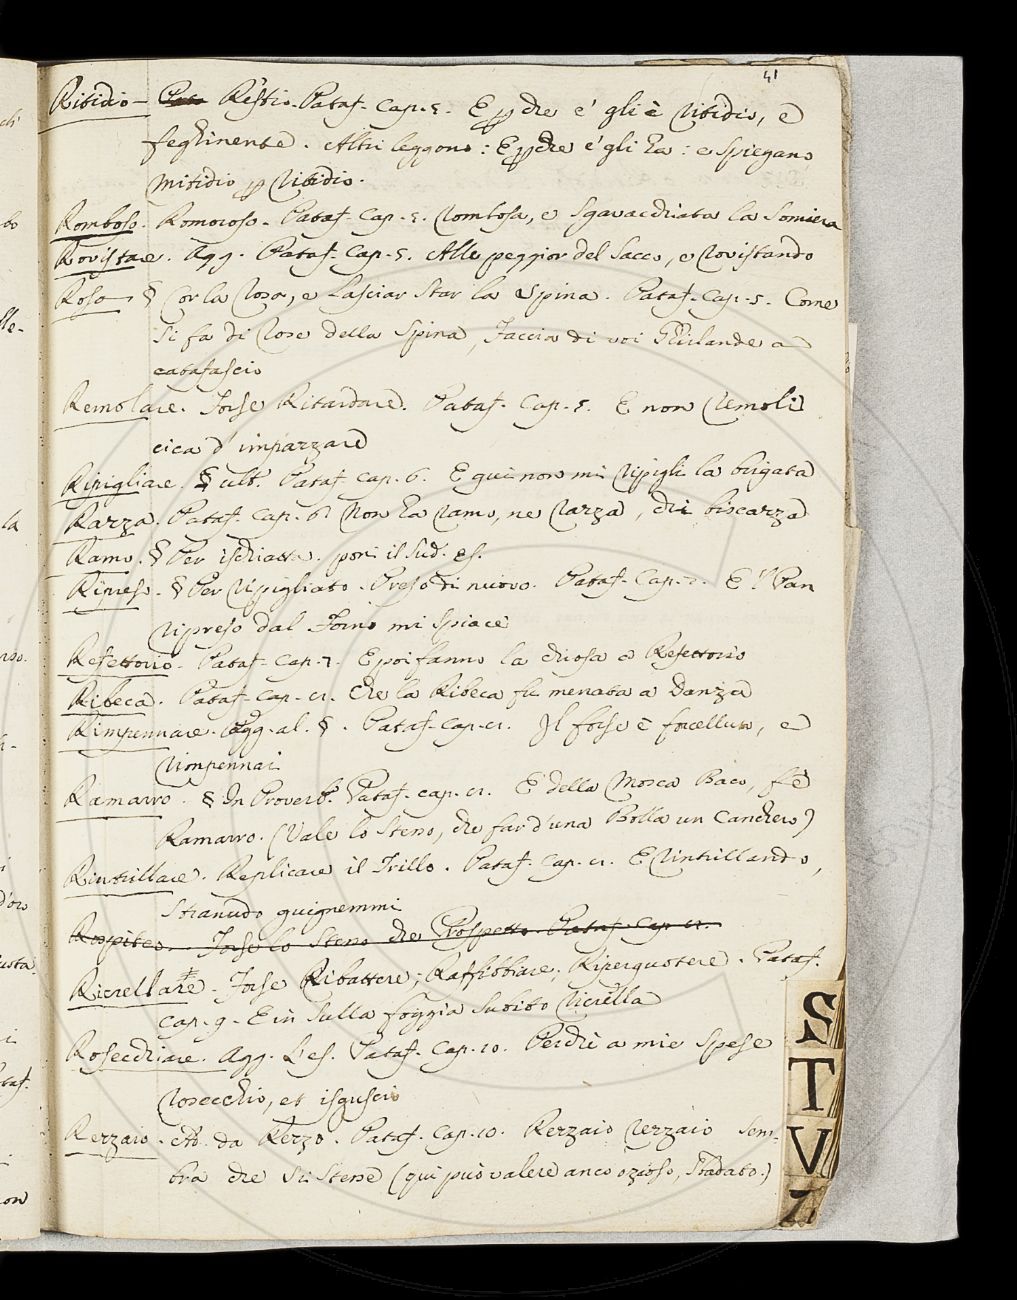 41
Ritidio - Restio. Pataf. Cap. 5. E pche e' gli è ritidio, e
feghinente. Altri leggono: E pche e' gli ha: e spiegano
mitidio p ritidio.
Romboso. Romoroso. Pataf. Cap. 5. rombosa, e sgavacchiata la somiera
Rovistare. Agg. Pataf. Cap. 5. Alle peggior del sacco, e rovistando
Rosa § Cor la rosa, e lasciar star la spina. Pataf. Cap. 5. Come
si fa di rose della spina, Faccia di voi Ghirlande a
catafascio
Remolare. Forse Ritardare. Pataf. Cap. 5. E non remoli
cica d'imparzare
Ripigliare. § ult. Pataf. Cap. 6. E qui non mi ripigli la brigata
Razza. Pataf. Cap. 6. Non ha ramo, ne razza, chi biscazza
Ramo. § Per ischiatta. poni il sud. es.
Ripreso. § Per ripigliato. Preso di nuovo. Pataf. Cap. 7. E 'l Pan
ripreso dal Forno mi spiace
Refettorio. Pataf. Cap. 7. E poi fanno la chiosa a Refettorio
Ribeca. Pataf. Cap. Che la Ribeca fu menata a Danza
Rimpennare. Agg. al. §. Pataf. Cap. Il forse è forcelluto, e
rimpennai
Ramarro. § In Proverb. Pataf. Cap. E della Mosca Baco, fè
Ramarro. (Vale lo steso, che far d'una Bolla un Canchero)
Rintrillare. Replicare il Trillo. Pataf. Cap. E rintrillando,
Stranudo guignemmi
Rospito. Forse lo steso che Prospetto. Pataf. Cap.
Ricrellare. Forse Ribattere; Raffibbiare; Ripercuotere. Pataf.
Cap. 9. E in sulla foggia subito ricrella
Rosecchiare. Agg. l'es. Pataf. Cap. 10. Perchè a mie spese
rosecchio, et isguscio
Rerzaio. da Rerzo. Pataf. Cap. 10. Rerzaio rerzaio sem-
bra che sii stene (qui può valere anco ozioso, Sfadato.)
S
T
V
Z